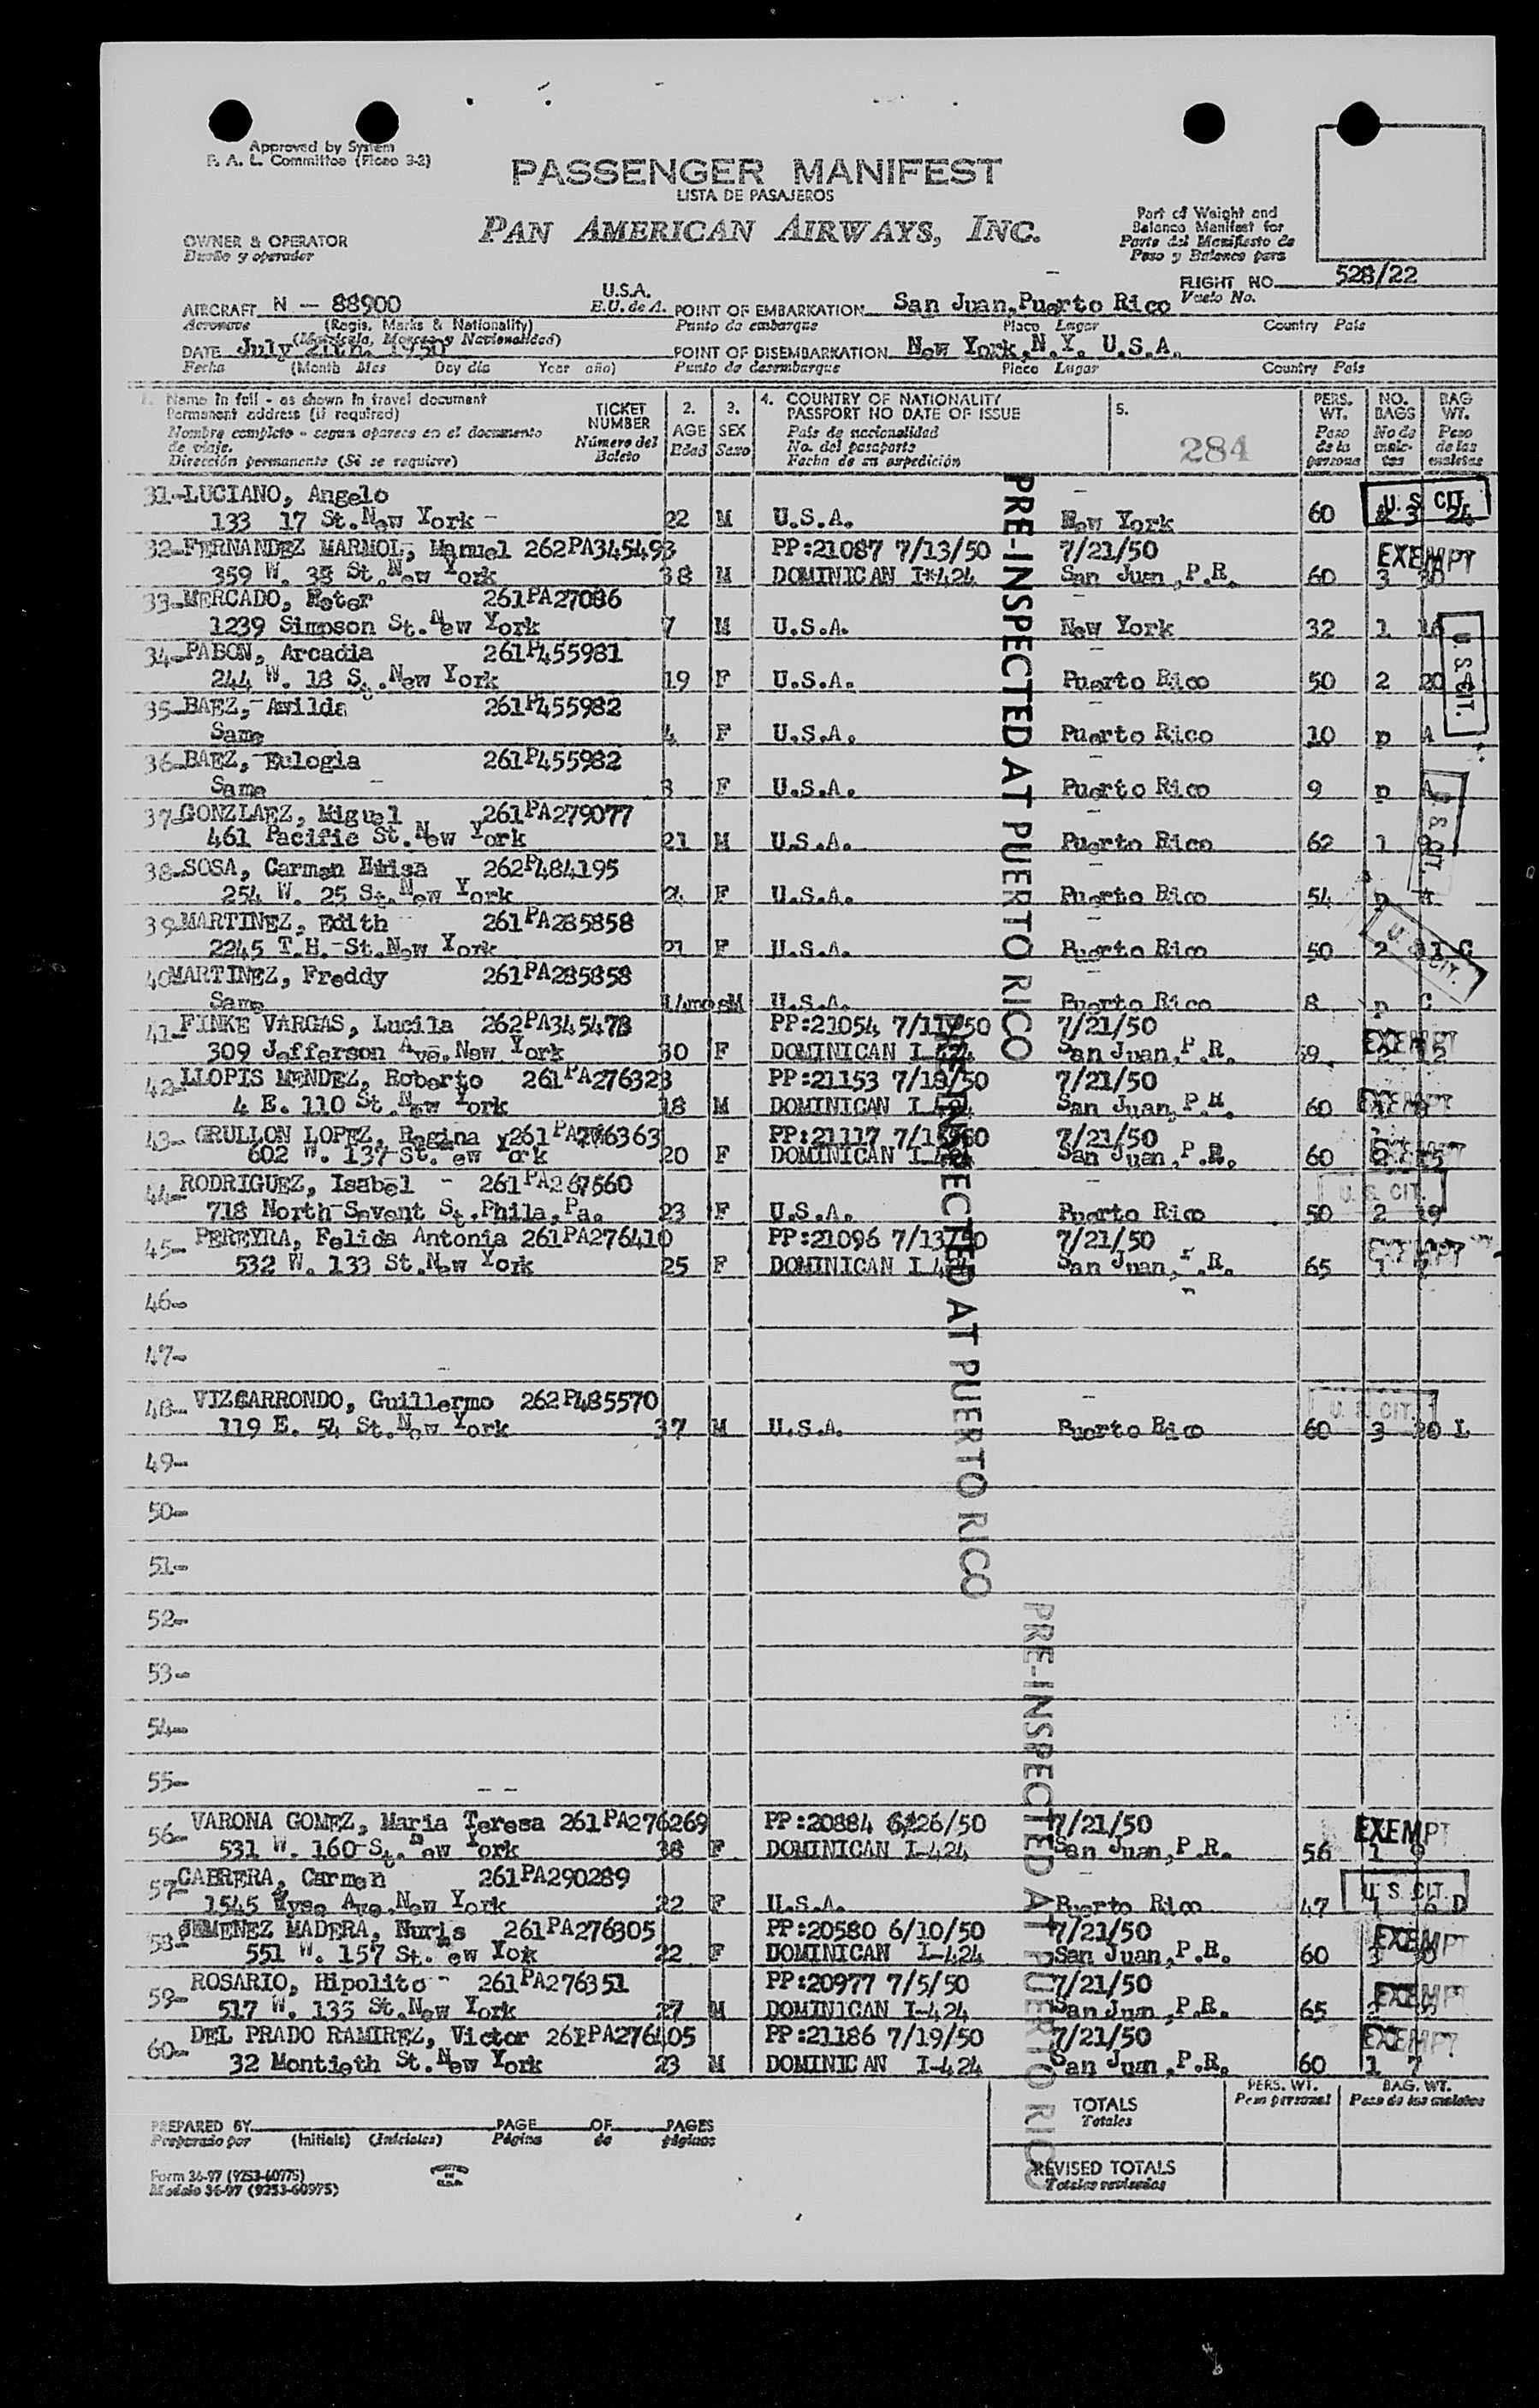 Approved by System
F. A. L. Committee (Ficao 3-2)
PASSENGER MANIFEST
LISTA DE PASAJEROS
PAN AMERICAN AIRWAYS, INC.
OWNER & OPERATOR
Dueño y operador
Part of Weight and
Balance Manifest for
Parte del Manifiesto de
Peso y Balance para
FLIGHT NO. 528/22
Vuelo No.
AIRCRAFT N - 88900 U.S.A.
Aeronave (Regis. Marks & Nationality) E.U. de A.
(Matricula, Marcas y Nacionalidad)
POINT OF EMBARKATION San Juan, Puerto Rico
Punto de embarque Place Lugar Country Pais
DATE July 21th. 1950
Fecha (Month Mes Day dia Year año)
POINT OF DISEMBARKATION New York, N.Y. U.S.A.
Punto de desembarque Place Lugar Country Pais
1. Name in full - as shown in travel document
Permanent address (if required)
Nombre completo - segun aparece en el documento
de viaje.
Dirección permanente (Si se requiere)
TICKET NUMBER
Número del Boleto
2. AGE Edad
3. SEX Sexo
4. COUNTRY OF NATIONALITY
PASSPORT NO DATE OF ISSUE
Pais de nacionalidad
No. del pasaporte
Fecha de su expedición
5.
284
PERS. WT. Peso de la persona
NO. BAGS No de maletas
BAG WT. Peso de las maletas
31-LUCIANO, Angelo
133 17 St. New York - 22 M U.S.A. New York 60 3 24 U. S. CIT.
32-FERNANDEZ MARMOL, Manuel 262PA345493 PP:21087 7/13/50 7/21/50 EXEMPT
359 W. 38 St. New York 38 M DOMINICAN I*424 San Juan, P.R. 60 3 30
33-MERCADO, 261PA27086
1239 Simpson St. New York 7 M U.S.A. New York 32 1
34-PABON, Arcadia 261P455981
244 W. 18 St. New York 19 F U.S.A. Puerto Rico 50 2 20 U. S. CIT.
35-BAEZ, 261P455982
Same 4 F U.S.A. Puerto Rico 10 p A
36-BAEZ, Eulogia 261P455982
Same 3 F U.S.A. Puerto Rico 9 p A
37-GONZLAEZ, Miguel 261PA279077
461 Pacific St. New York 21 M U.S.A. Puerto Rico 62 1 U. S. CIT.
38-SOSA, Carmen 262P484195
254 W. 25 St. New York F U.S.A. Puerto Rico 54 p
39-MARTINEZ, Edith 261PA285858
2245 T.H. St. New York 21 F U.S.A. Puerto Rico 50 2 C U. S. CIT.
40MARTINEZ, Freddy 261PA285858
Same M U.S.A. Puerto Rico 8 p C
41-FINKE VARGAS, Lucila 262PA345478 PP:21054 7/11/50 7/21/50
309 Jefferson Ave. New York 30 F DOMINICAN I-424 San Juan, P.R. 59 2 12 EXEMPT
42-LLOPIS MENDEZ, Roberto 261PA276323 PP:21153 7/18/50 7/21/50
4 E. 110 St. New York 18 M DOMINICAN I-424 San Juan, P.R. 60 EXEMPT
43- GRULLON LOPEZ, Regina 261PA276363 PP:21117 7/21/50
602 W. 137 St. New York 20 F DOMINICAN I-424 San Juan, P.R. 60 EXEMPT
44-RODRIGUEZ, Isabel - 261PA267560
718 North Sevent St. Phila, Pa. 23 F U.S.A. Puerto Rico 50 2 19 U. S. CIT.
45- PEREYRA, Felida Antonia 261PA276410 PP:21096 7/13/50 7/21/50
532 W. 133 St. New York 25 F DOMINICAN I-424 San Juan, P.R. 65 1 EXEMPT
46-
47-
48- VIZCARRONDO, Guillermo 262P485570
119 E. 54 St. New York 37 M U.S.A. Puerto Rico 60 3 30 L U. S. CIT.
49-
50-
51-
52-
53-
54-
55-
56- VARONA GOMEZ, Maria Teresa 261PA276269 PP:20884 6/26/50 7/21/50 EXEMPT
531 W. 160 St. New York 38 F DOMINICAN I-424 San Juan, P.R. 56 1 9
57-CABRERA, Carmen 261PA290289
1545 Ave. New York 22 F U.S.A. Puerto Rico 47 1 6 D U. S. CIT.
58-JEMENEZ MADERA, Nuris 261PA276305 PP:20580 6/10/50 7/21/50
551 W. 157 St. New Yok 22 F DOMINICAN I-424 San Juan, P.R. 60 3 30 EXEMPT
59- ROSARIO, Hipolito - 261PA276351 PP:20977 7/5/50 7/21/50
517 W. 135 St. New York 27 M DOMINICAN I-424 San Juan, P.R. 65 2 EXEMPT
60- DEL PRADO RAMIREZ, Victor 261PA276405 PP:21186 7/19/50 7/21/50 EXEMPT
32 Montieth St. New York 23 M DOMINICAN I-424 San Juan, P.R. 60 1 7
PRE-INSPECTED AT PUERTO RICO
PRE-INSPECTED AT PUERTO RICO
PRE-INSPECTED AT PUERTO RICO
PREPARED BY PAGE OF PAGES
Preparado por (Initials) (Iniciales) Página de páginas
TOTALS
Totales
PERS. WT.
Peso personal
BAG. WT.
Peso de las maletas
REVISED TOTALS
Totales revisados
Form 36-97 (9253-60975)
Modelo 36-97 (9253-60975)